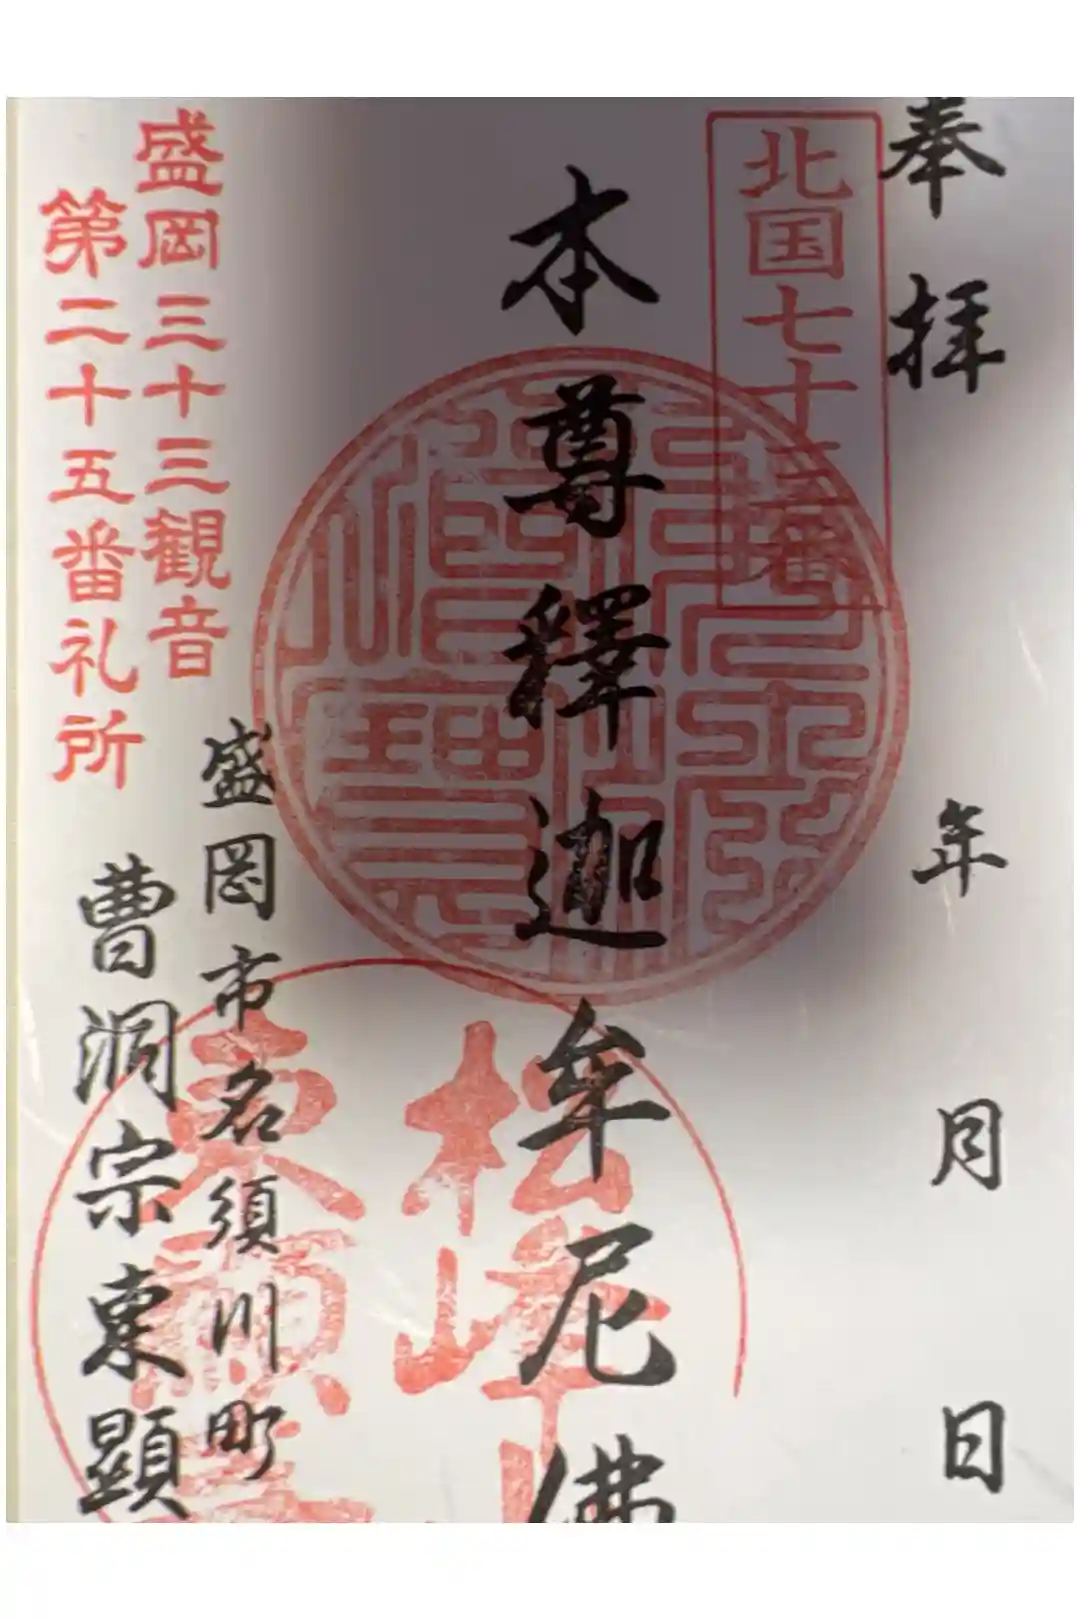 奉拝
年 月 日
北国七十三番
本尊釋迦牟尼佛
松峰山
東顕寺
盛岡市名須川町
盛岡三十三観音
第二十五番礼所
曹洞宗東顕